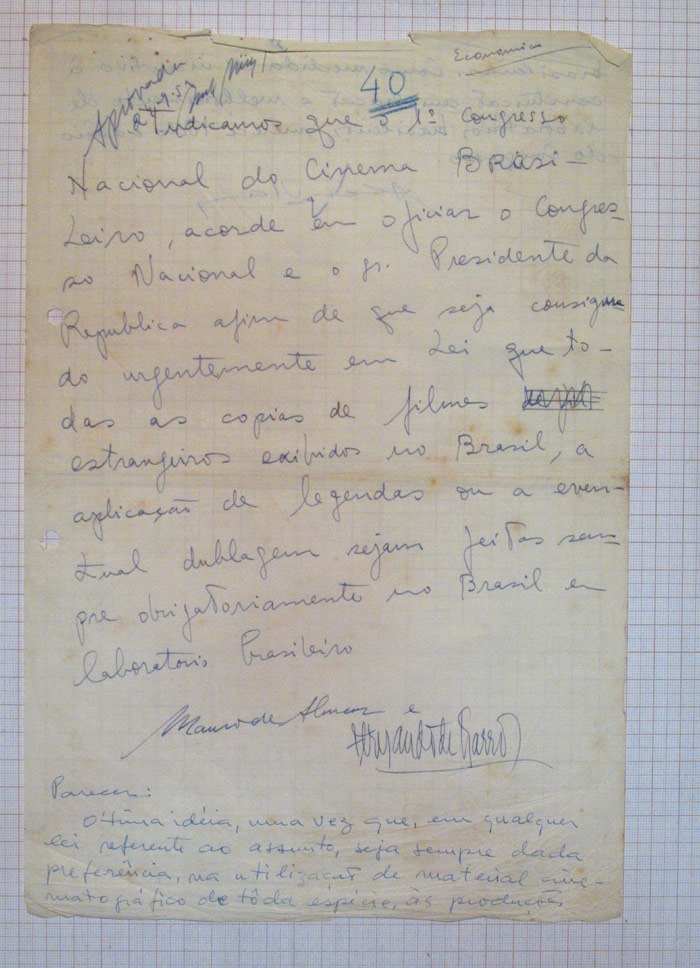 Economica
Aprovado
40
Indicamos que o 1º Congresso
Nacional do Cinema Brasi-
leiro, acorde em oficiar o Congres-
so Nacional e o sr. Presidente da
Republica afim de que seja consigna
do urgentemente em Lei que to-
das as copias de filmes
estrangeiros exibidos no Brasil, a
aplicação de legendas ou a even-
tual dublagem sejam feitas sem
pre obrigatoriamente no Brasil em
laboratorio brasileiro
Mauro de e
de
Parecer:
Ótima idéia, uma vez que, em qualquer
lei referente ao assunto, seja sempre dada
preferência, na utilização de material cine-
matográfico de tôda espécie, às produções